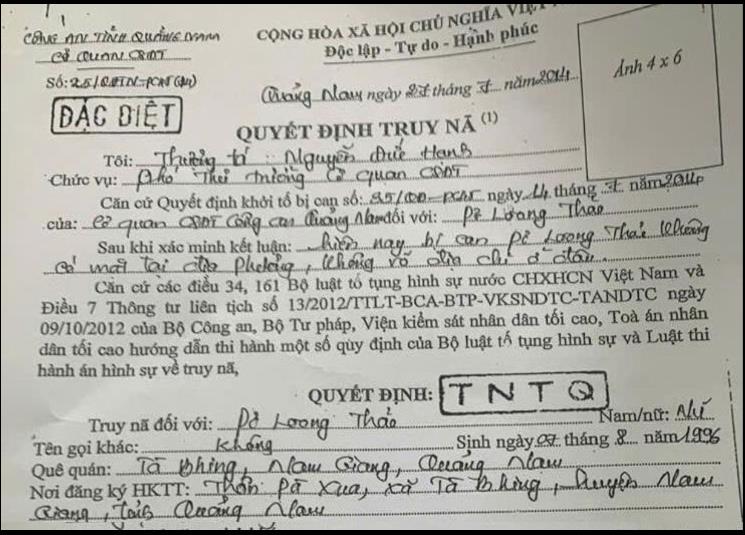 CÔNG AN TỈNH QUẢNG NAM
CƠ QUAN CSĐT
CỘNG HÒA XÃ HỘI CHỦ NGHĨA VIỆT
Độc lập - Tự do - Hạnh phúc
Số: 25/
ĐẶC BIỆT
Quảng Nam ngày tháng năm 2014
Ảnh 4 x 6
QUYẾT ĐỊNH TRUY NÃ (1)
Tôi: Thượng tá: Nguyễn Đức
Chức vụ: Phó Thủ trưởng Cơ quan CSĐT
Căn cứ Quyết định khởi tố bị can số: ngày 14 tháng năm 2014
của: Cơ quan CSĐT Công an Quảng Nam đối với: Loong Thảo
Sau khi xác minh kết luận: hiện nay bị can Loong Thảo không
có mặt tại địa phương, không rõ địa chỉ ở đâu.
Căn cứ các điều 34, 161 Bộ luật tố tụng hình sự nước CHXHCN Việt Nam và
Điều 7 Thông tư liên tịch số 13/2012/TTLT-BCA-BTP-VKSNDTC-TANDTC ngày
09/10/2012 của Bộ Công an, Bộ Tư pháp, Viện kiểm sát nhân dân tối cao, Toà án nhân
dân tối cao hướng dẫn thi hành một số quy định của Bộ luật tố tụng hình sự và Luật thi
hành án hình sự về truy nã,
QUYẾT ĐỊNH: TNTQ
Truy nã đối với: Loong Thảo Nam/nữ: Nữ
Tên gọi khác: Không Sinh ngày tháng 8 năm 1996
Quê quán: Tà Bhing, Nam Giang, Quảng Nam
Nơi đăng ký HKTT: Thôn Pà Xua, xã Tà Bhing, huyện Nam
Giang, tỉnh Quảng Nam